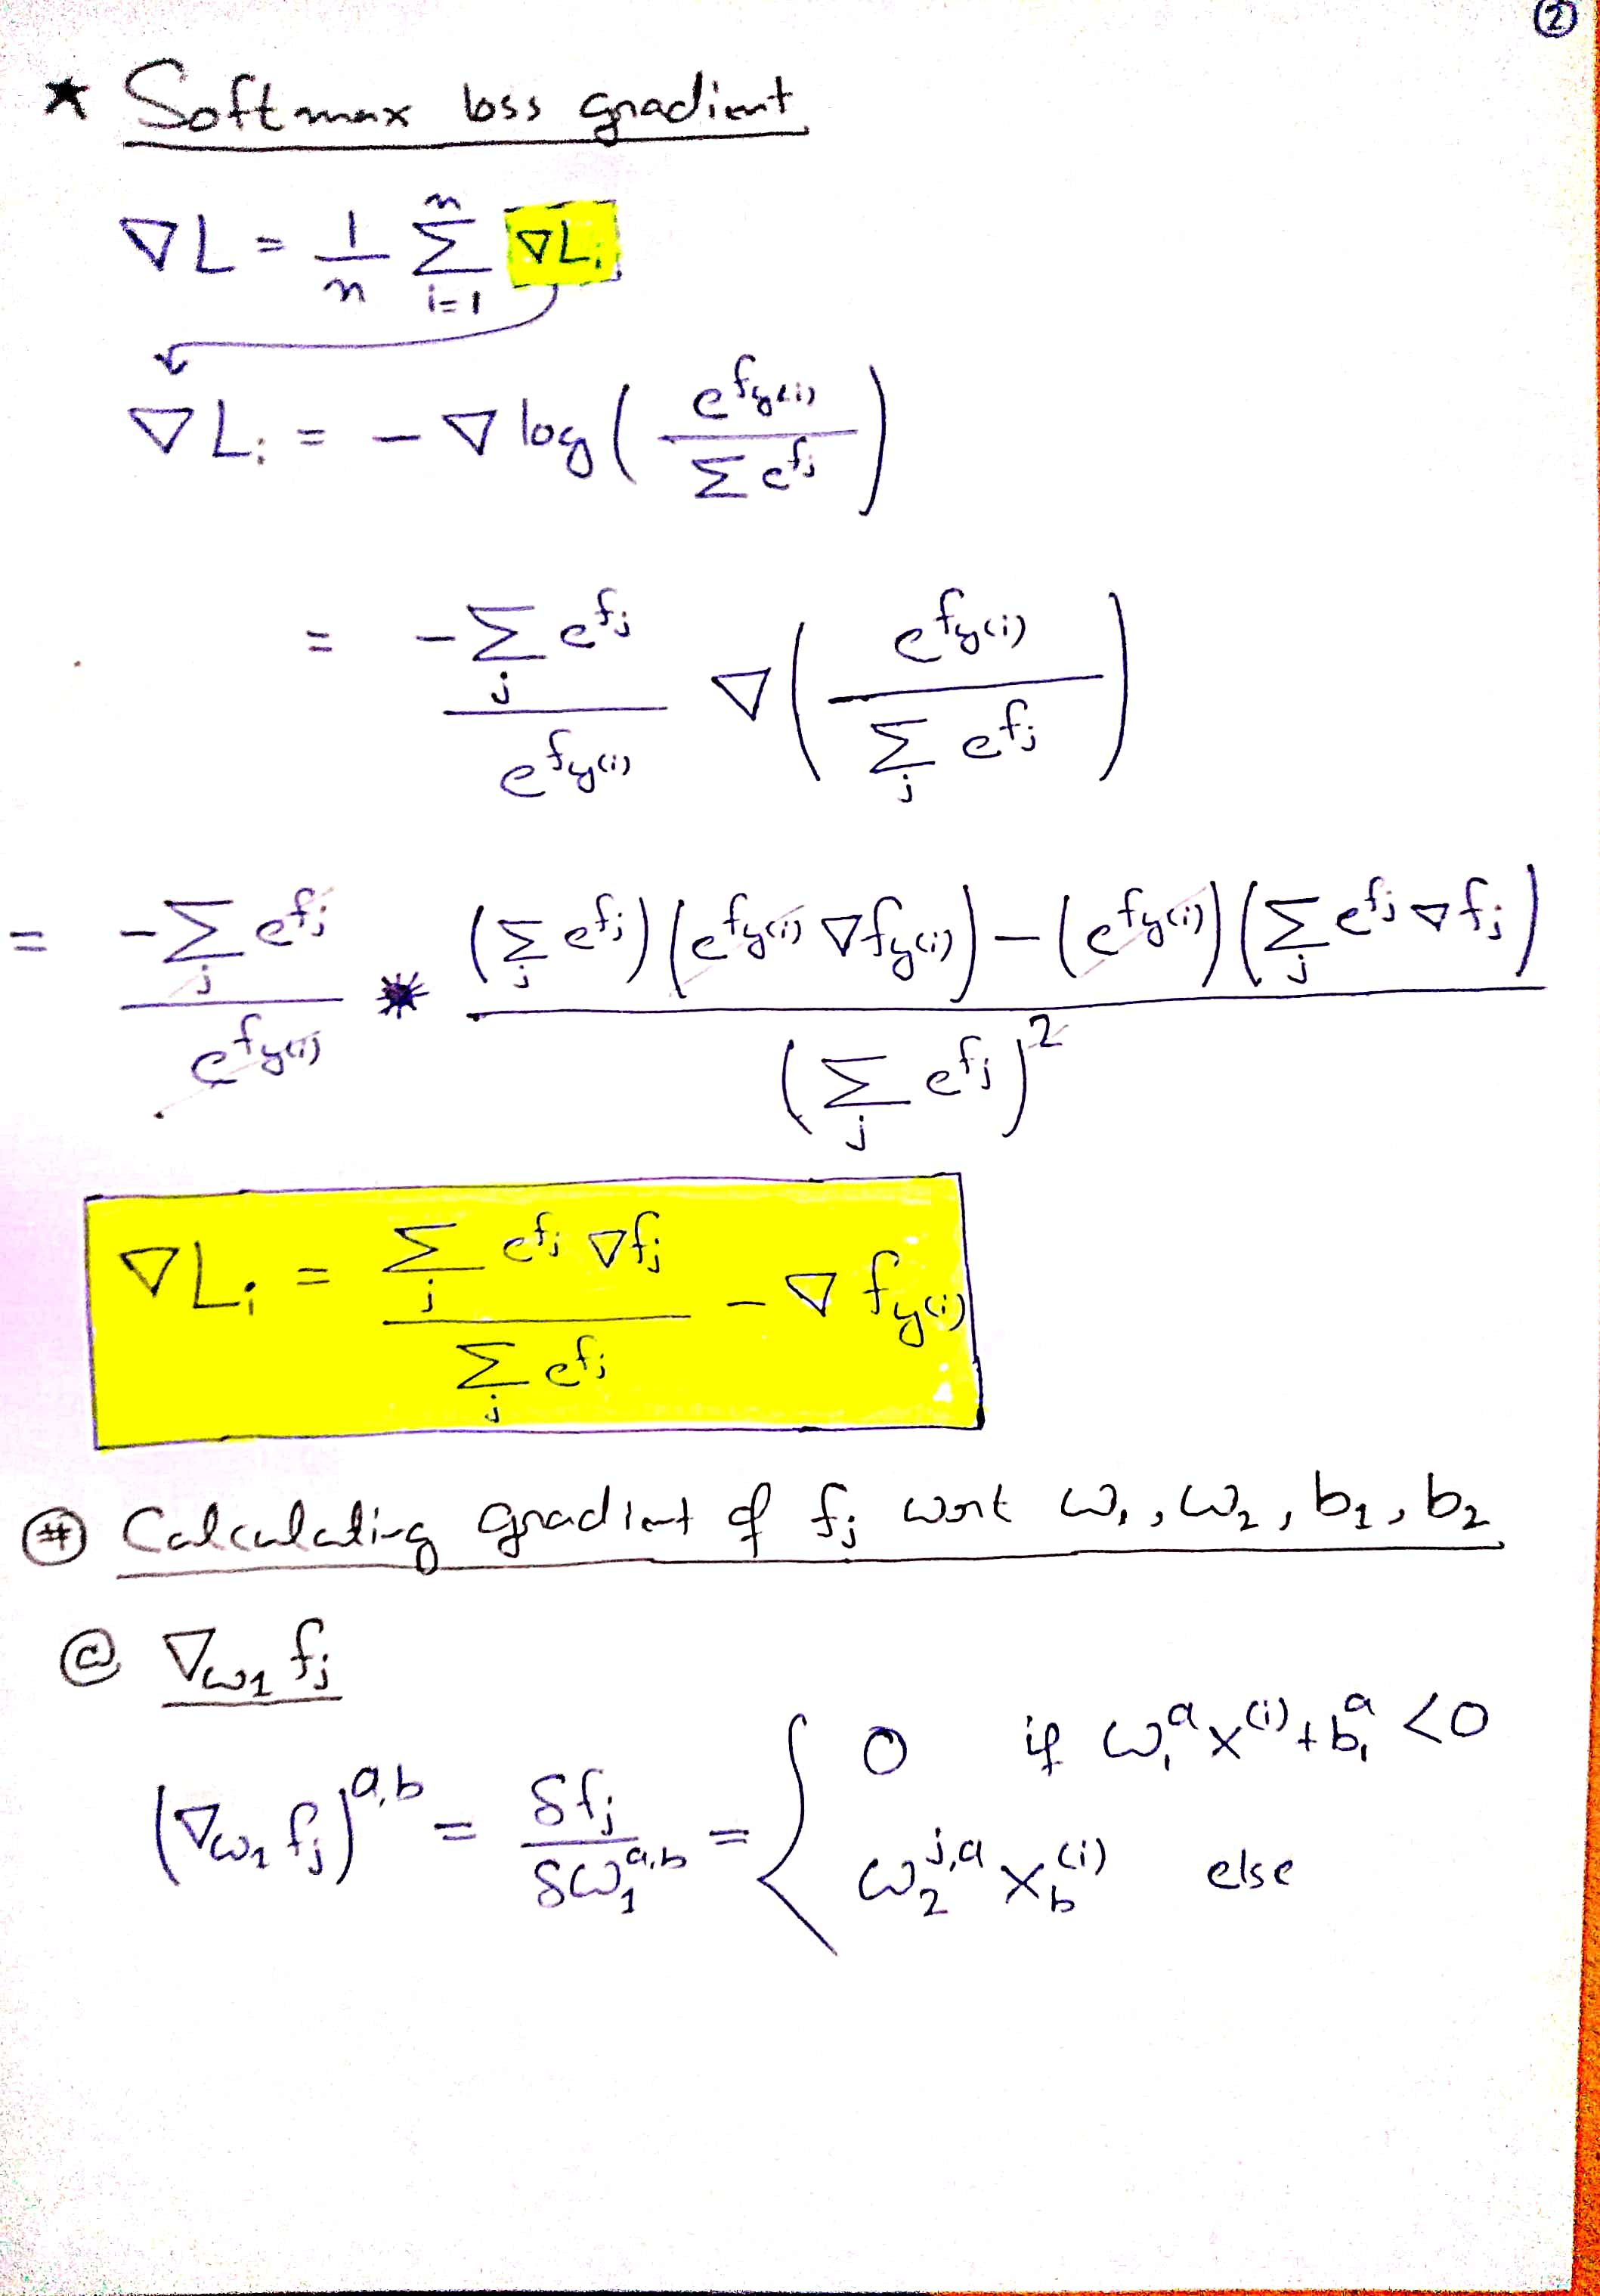 ②
★ Softmax loss gradient
∇L = 1/n Σ_{i=1}^{n} ∇L_i
∇L_i = - ∇ log( e^{f_{y(i)}} / Σ e^{f_j} )
= -Σ_j e^{f_j} / e^{f_{y(i)}} ∇( e^{f_{y(i)}} / Σ_j e^{f_j} )
= -Σ_j e^{f_j} / e^{f_{y(i)}} * ( (Σ_j e^{f_j}) (e^{f_{y(i)}} ∇f_{y(i)}) - (e^{f_{y(i)}}) (Σ_j e^{f_j} ∇f_j) ) / (Σ_j e^{f_j})^2
∇L_i = Σ_j e^{f_j} ∇f_j / Σ_j e^{f_j} - ∇f_{y(i)}
# Calculating gradient of f_j wrt ω_1, ω_2, b_1, b_2
@ ∇_{ω1} f_j
(∇_{ω1} f_j)^{a,b} = δf_j / δω_1^{a,b} = { 0 if ω_1^a x^{(i)} + b_1^a < 0
ω_2^{j,a} x_b^{(i)} else